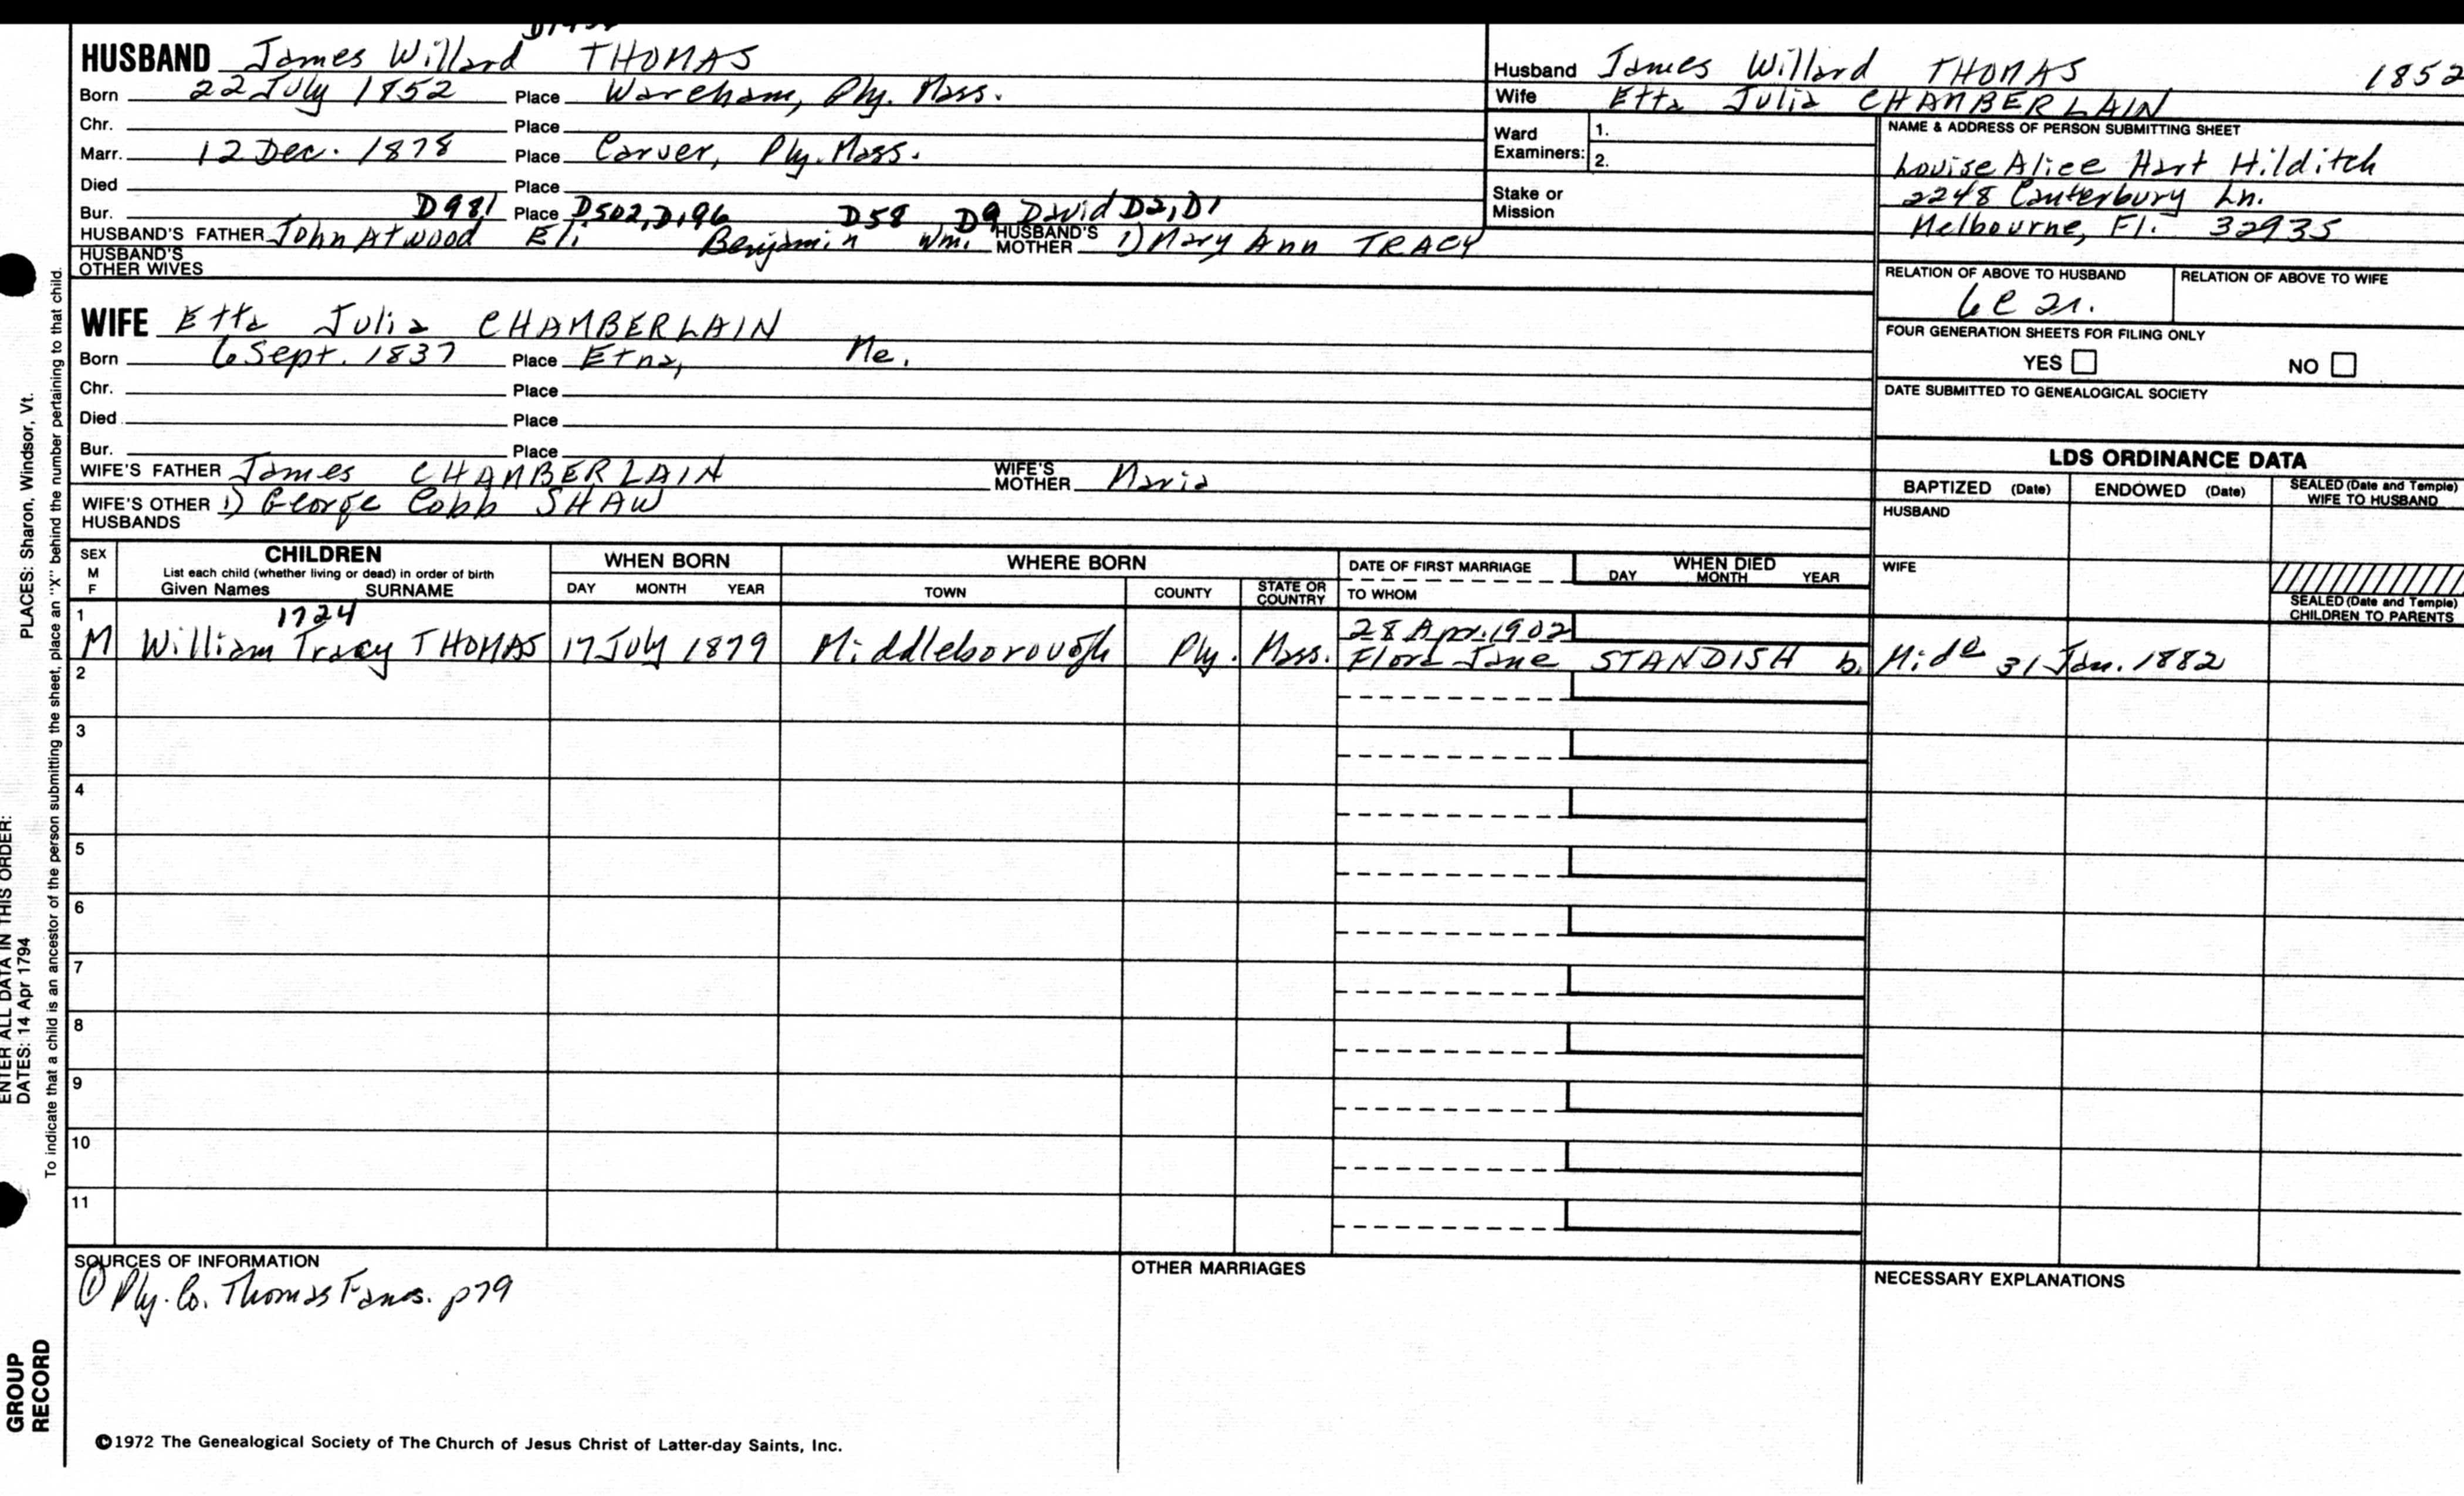 HUSBAND James Willard THOMAS
Born 22 July 1852 Place Wareham, Ply. Mass.
Chr. Place
Marr. 12 Dec. 1878 Place Carver, Ply. Mass.
Died Place
Bur. D981 Place D502, D196 D58 D9 David D2, D1
HUSBAND'S FATHER John Atwood Eli Benjamin Wm. HUSBAND'S MOTHER 1) Mary Ann TRACY
HUSBAND'S OTHER WIVES
Husband James Willard THOMAS 1852
Wife Etta Julia CHAMBERLAIN
Ward Examiners: 1.
2.
Stake or Mission
NAME & ADDRESS OF PERSON SUBMITTING SHEET
Louise Alice Hart Hilditch
2248 Canterbury Ln.
Melbourne, Fl. 32935
RELATION OF ABOVE TO HUSBAND RELATION OF ABOVE TO WIFE
6C 2r.
FOUR GENERATION SHEETS FOR FILING ONLY
YES NO
DATE SUBMITTED TO GENEALOGICAL SOCIETY
WIFE Etta Julia CHAMBERLAIN
Born 6 Sept. 1837 Place Etna, Me.
Chr. Place
Died Place
Bur. Place
WIFE'S FATHER James CHAMBERLAIN WIFE'S MOTHER Maria
WIFE'S OTHER HUSBANDS 1) George Cobb SHAW
LDS ORDINANCE DATA
BAPTIZED (Date) ENDOWED (Date) SEALED (Date and Temple) WIFE TO HUSBAND
HUSBAND
WIFE
SEALED (Date and Temple) CHILDREN TO PARENTS
SEX M F CHILDREN WHEN BORN WHERE BORN DATE OF FIRST MARRIAGE WHEN DIED
List each child (whether living or dead) in order of birth
Given Names SURNAME DAY MONTH YEAR TOWN COUNTY STATE OR COUNTRY TO WHOM DAY MONTH YEAR
1 1724 28 Apr. 1902
M William Tracy THOMAS 17 July 1879 Middleborough Ply. Mass. Flora Jane STANDISH b. Mide 31 Jan. 1882
2
3
4
5
6
7
8
9
10
11
SOURCES OF INFORMATION OTHER MARRIAGES NECESSARY EXPLANATIONS
① Ply. Co. Thomas Fams. p79
©1972 The Genealogical Society of The Church of Jesus Christ of Latter-day Saints, Inc.
ENTER ALL DATA IN THIS ORDER:
DATES: 14 Apr 1794 PLACES: Sharon, Windsor, Vt.
To indicate that a child is an ancestor of the person submitting the sheet, place an "X" behind the number pertaining to that child.
GROUP
RECORD